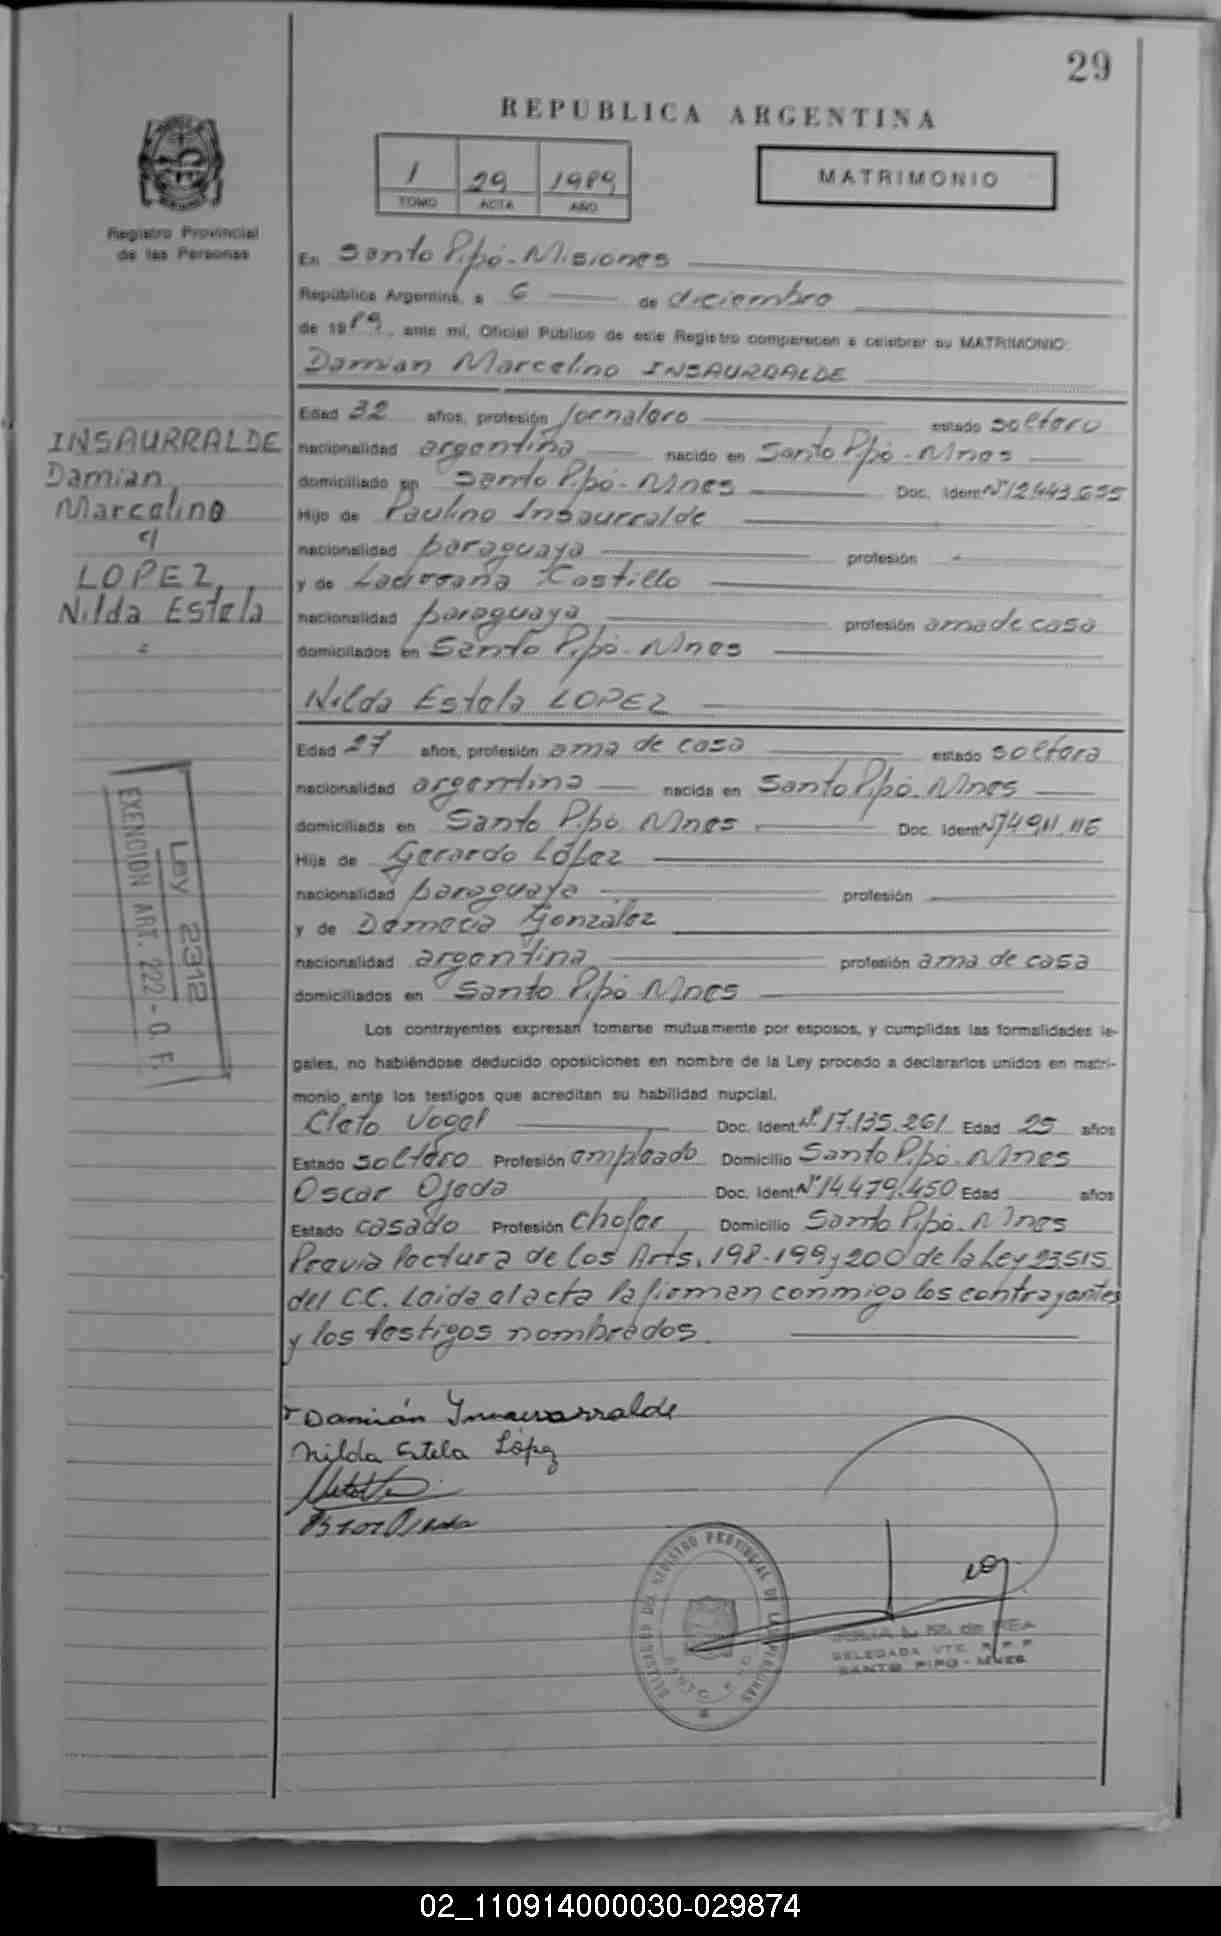 29
REPUBLICA ARGENTINA
1 29 1989
TOMO ACTA AÑO
MATRIMONIO
Registro Provincial
de las Personas
En Santo Pipó - Misiones
República Argentina, a 6 de diciembre
de 1989, ante mí, Oficial Público de este Registro comparecen a celebrar su MATRIMONIO:
Damian Marcelino INSAURRALDE
Edad 32 años, profesión Jornalero estado soltero
nacionalidad argentina nacido en Santo Pipó - Mnes
domiciliado en Santo Pipó - Mnes Doc. Ident. Nº 12.443.655
Hijo de Paulino Insaurralde
nacionalidad paraguaya profesión -
y de Castillo
nacionalidad paraguaya profesión ama de casa
domiciliados en Santo Pipó - Mnes
INSAURRALDE
Damian
Marcelino
c/
LOPEZ,
Nilda Estela
Nilda Estela LOPEZ
Edad 27 años, profesión ama de casa estado soltera
nacionalidad argentina nacida en Santo Pipó - Mnes
domiciliada en Santo Pipó Mnes Doc. Ident. Nº 14.911.116
Hija de Gerardo López
nacionalidad paraguaya profesión
y de Gonzalez
nacionalidad argentina profesión ama de casa
domiciliados en Santo Pipó Mnes
Ley 2312
EXENCION ART. 222 - O. F.
Los contrayentes expresan tomarse mutuamente por esposos, y cumplidas las formalidades le-
gales, no habiéndose deducido oposiciones en nombre de la Ley procedo a declararlos unidos en matri-
monio ante los testigos que acreditan su habilidad nupcial.
Cleto Vogel Doc. Ident. Nº 17.135.261 Edad 25 años
Estado soltero Profesión empleado Domicilio Santo Pipó - Mnes
Oscar Ojeda Doc. Ident. Nº 14.479.450 Edad años
Estado casado Profesión chofer Domicilio Santo Pipó - Mnes
Previa lectura de los Arts. 198-199 y 200 de la Ley 23515
del C.C. Leida el acta la firman conmigo los contrayentes
y los testigos nombrados.
Damián Insaurralde
Nilda Estela López
Oscar Ojeda
REGISTRO PROVINCIAL DE LAS PERSONAS
de REA
DELEGADA VTE. R. P. P.
SANTO PIPO - MNES
02_110914000030-029874